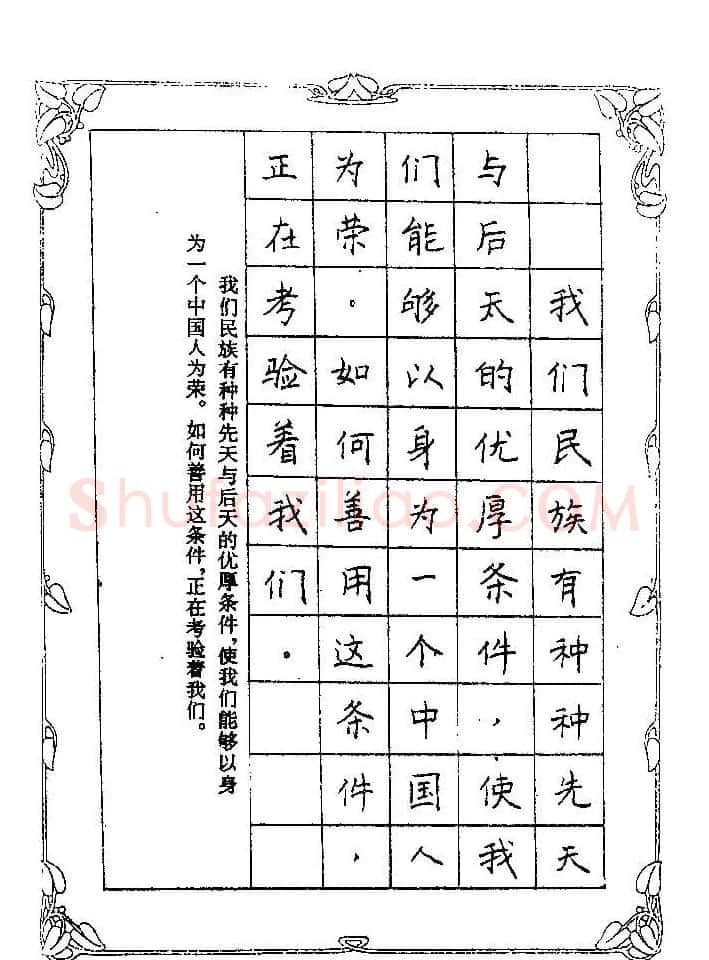 我们民族有种种先天
与后天的优厚条件，使我
们能够以身为一个中国人
为荣。如何善用这条件，
正在考验着我们。
我们民族有种种先天与后天的优厚条件，使我们能够以身
为一个中国人为荣。如何善用这条件，正在考验着我们。
Shufaziliao.COM